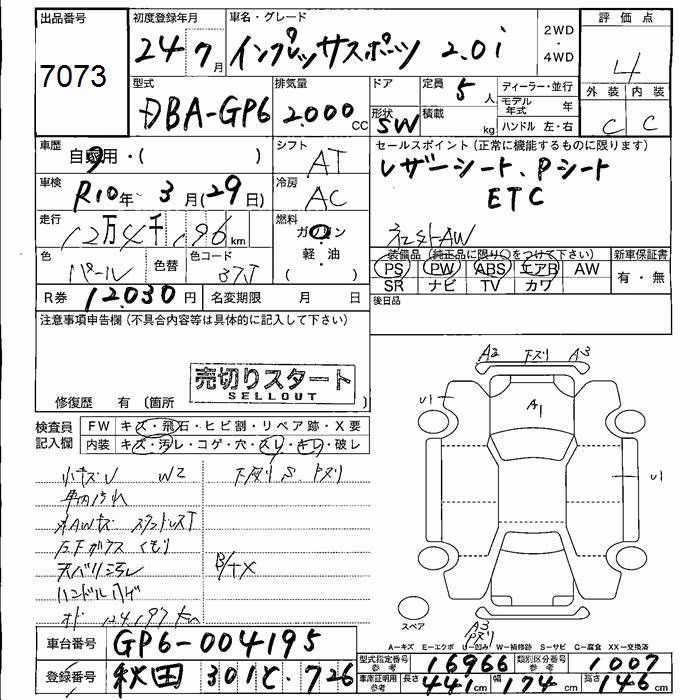 出品番号
7073
初度登録年月
24 7月
車名・グレード
インプレッサスポーツ 2.0i
2WD
・
4WD
評価点
4
外装 内装
C C
型式
DBA-GP6
排気量
2.000 CC
ドア
形状
SW
定員
5人
積載
kg
ディーラー・並行
モデル年式 年
ハンドル 左・右
車歴
自家用・( )
シフト
AT
セールスポイント (正常に機能するものに限ります)
レザーシート、Pシート
ETC
社外AW
車検
R10年 3月(29日)
冷房
AC
走行
12万4千196km
燃料
ガソリン
軽・油
( )
色
パール
色替
色コード
37J
装備品 (純正品に限り○をつけて下さい)
PS PW ABS エアB AW
SR ナビ TV カワ
新車保証書
有・無
R券 12030円
名変期限 月 日
後日品
注意事項申告欄 (不具合内容等は具体的に記入して下さい)
売切りスタート
SELLOUT
修復歴 有 (箇所 )
検査員
記入欄
FW キズ・飛石・ヒビ割・リペア跡・X要
内装 キズ・汚レ・コゲ・穴・スレ・キレ・破レ
小キズU W2
下廻リ S
車内汚れ
天バリ汚レ
ハンドルハゲ
B/TX
A2 下スリ A3
A1
U1
U1
スペア
A3
A-キズ E-エクボ U-凹み W-補修跡 S-サビ C-腐食 XX-交換済
車台番号 GP6-004195
登録番号 秋田 301 726
型式指定番号 参考 16966
類別区分番号 参考 1007
車庫証明用 参考 長さ 441cm 幅 174cm 高さ 146cm